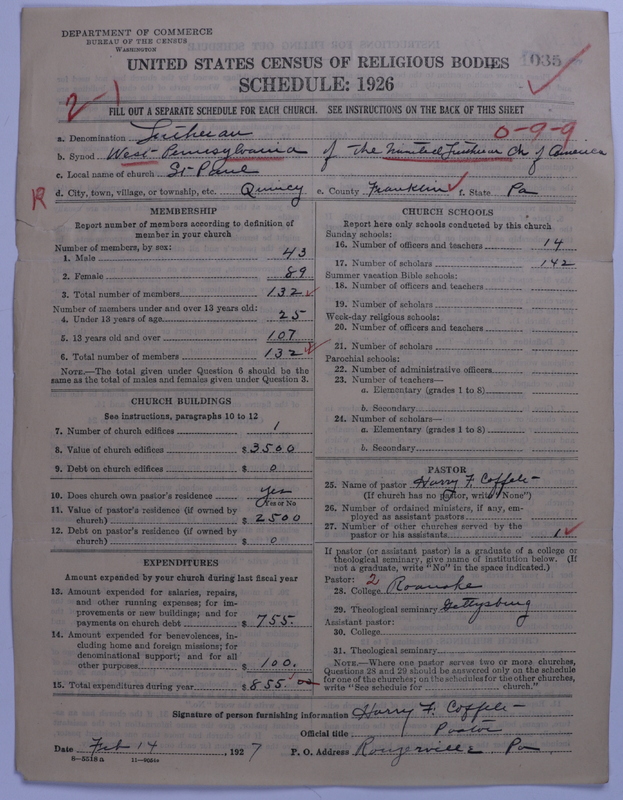 DEPARTMENT OF COMMERCE
BUREAU OF THE CENSUS
WASHINGTON
UNITED STATES CENSUS OF RELIGIOUS BODIES
1035
SCHEDULE: 1926
2-1
FILL OUT A SEPARATE SCHEDULE FOR EACH CHURCH. SEE INSTRUCTIONS ON THE BACK OF THIS SHEET
0-9-9
a. Denomination Lutheran
b. Synod West Pennsylvania of the United Lutheran Ch of America
c. Local name of church St Paul
d. City, town, village, or township, etc. Quincy e. County Franklin f. State Pa
MEMBERSHIP
Report number of members according to definition of
member in your church
Number of members, by sex:
1. Male 43
2. Female 89
3. Total number of members 132
Number of members under and over 13 years old:
4. Under 13 years of age 25
5. 13 years old and over 107
6. Total number of members 132
NOTE.—The total given under Question 6 should be the
same as the total of males and females given under Question 3.
CHURCH BUILDINGS
See instructions, paragraphs 10 to 12
7. Number of church edifices 1
8. Value of church edifices $ 3500
9. Debt on church edifices $ 0
10. Does church own pastor's residence yes
(Yes or No)
11. Value of pastor's residence (if owned by
church) $ 2500
12. Debt on pastor's residence (if owned by
church) $ 0
EXPENDITURES
Amount expended by your church during last fiscal year
13. Amount expended for salaries, repairs,
and other running expenses; for im-
provements or new buildings; and for
payments on church debt $ 755.
14. Amount expended for benevolences, in-
cluding home and foreign missions; for
denominational support; and for all
other purposes $ 100.
15. Total expenditures during year $ 855.00
CHURCH SCHOOLS
Report here only schools conducted by this church
Sunday schools:
16. Number of officers and teachers 14
17. Number of scholars 142
Summer vacation Bible schools:
18. Number of officers and teachers
19. Number of scholars
Week-day religious schools:
20. Number of officers and teachers
21. Number of scholars
Parochial schools:
22. Number of administrative officers
23. Number of teachers—
a. Elementary (grades 1 to 8)
b. Secondary
24. Number of scholars—
a. Elementary (grades 1 to 8)
b. Secondary
PASTOR
25. Name of pastor Harry F. Coffele
(If church has no pastor, write "None")
26. Number of ordained ministers, if any, em-
ployed as assistant pastors
27. Number of other churches served by the
pastor or his assistants 1
If pastor (or assistant pastor) is a graduate of a college or
theological seminary, give name of institution below. (If
not a graduate, write "No" in the space indicated.)
Pastor: 2
28. College Roanoke
29. Theological seminary Gettysburg
Assistant pastor:
30. College
31. Theological seminary
NOTE.—Where one pastor serves two or more churches,
Questions 28 and 29 should be answered only on the schedule
for one of the churches; on the schedules for the other churches,
write "See schedule for church."
Signature of person furnishing information Harry F. Coffele
Official title Pastor
Date Feb 14 1927 P. O. Address Rouzerville Pa
8-5518a 11-9054a